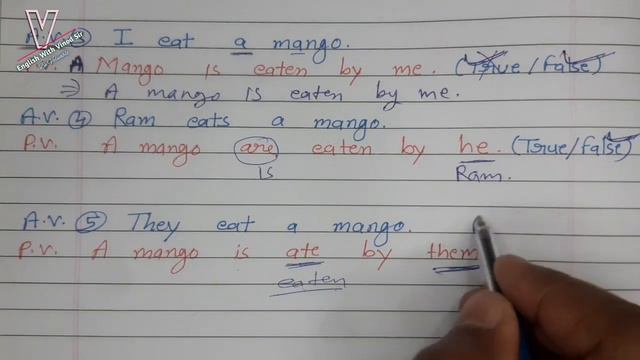 V
English With Vinod Sir
A.V. ③ I eat a mango.
P.V. A Mango is eaten by me. (True/False)
⇒ A mango is eaten by me.
A.V. ④ Ram eats a mango.
P.V. A mango are eaten by he. (True/False)
is Ram.
A.V. ⑤ They eat a mango.
P.V. A mango is ate by them
eaten